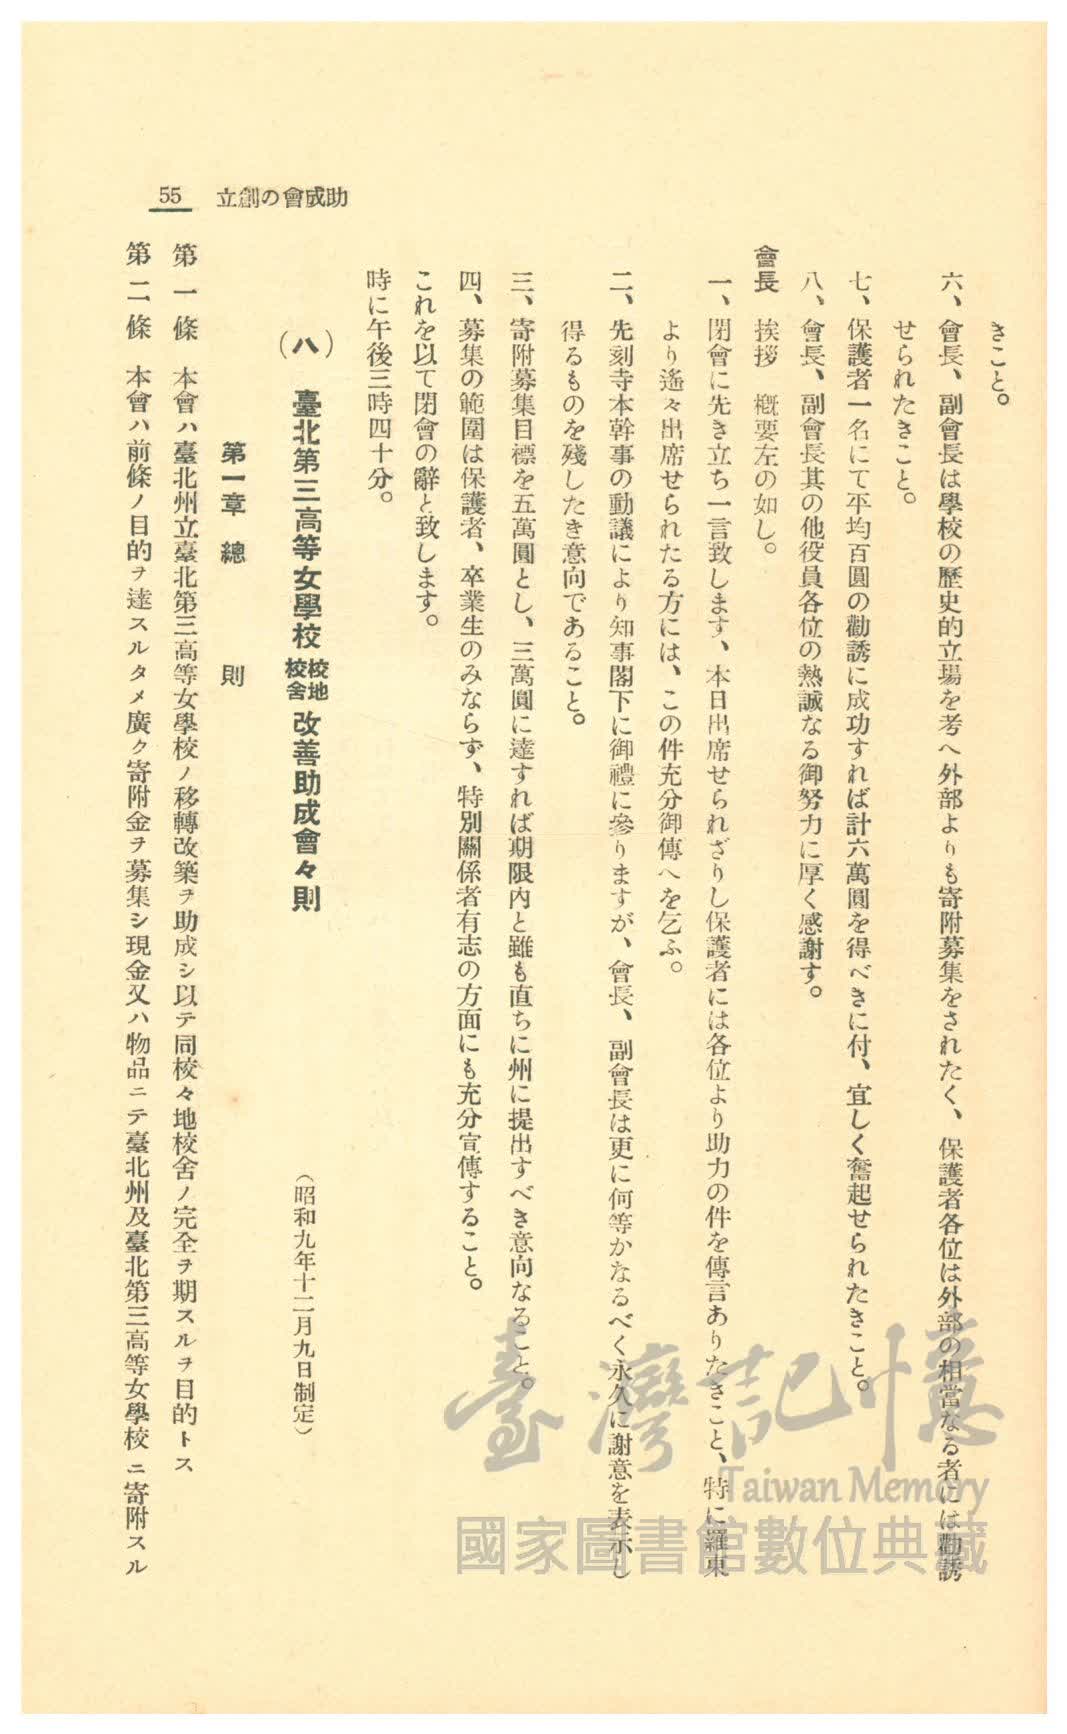 55 助成會の創立
きこと。
六、會長、副會長は學校の歷史的立場を考へ外部よりも寄附募集をされたく、保護者各位は外部の相當なる者には勸誘
せられたきこと。
七、保護者一名にて平均百圓の勸誘に成功すれば計六萬圓を得べきに付、宜しく奮起せられたきこと。
八、會長、副會長其の他役員各位の熱誠なる御努力に厚く感謝す。
會長 挨拶 槪要左の如し。
一、閉會に先き立ち一言致します、本日出席せられざりし保護者には各位より助力の件を傳言ありたきこと、特に羅東
より遙々出席せられたる方には、この件充分御傳へを乞ふ。
二、先刻寺本幹事の動議により知事閣下に御禮に參りますが、會長、副會長は更に何等かなるべく永久に謝意を表示し
得るものを殘したき意向であること。
三、寄附募集目標を五萬圓とし、三萬圓に達すれば期限內と雖も直ちに州に提出すべき意向なること。
四、募集の範圍は保護者、卒業生のみならず、特別關係者有志の方面にも充分宣傳すること。
これを以て閉會の辭と致します。
時に午後三時四十分。
(八) 臺北第三高等女學校校地校舍改善助成會々則
(昭和九年十二月九日制定)
第一章 總則
第一條 本會ハ臺北州立臺北第三高等女學校ノ移轉改築ヲ助成シ以テ同校々地校舍ノ完全ヲ期スルヲ目的トス
第二條 本會ハ前條ノ目的ヲ達スルタメ廣ク寄附金ヲ募集シ現金又ハ物品ニテ臺北州及臺北第三高等女學校ニ寄附スル
臺灣記憶
Taiwan Memory
國家圖書館數位典藏